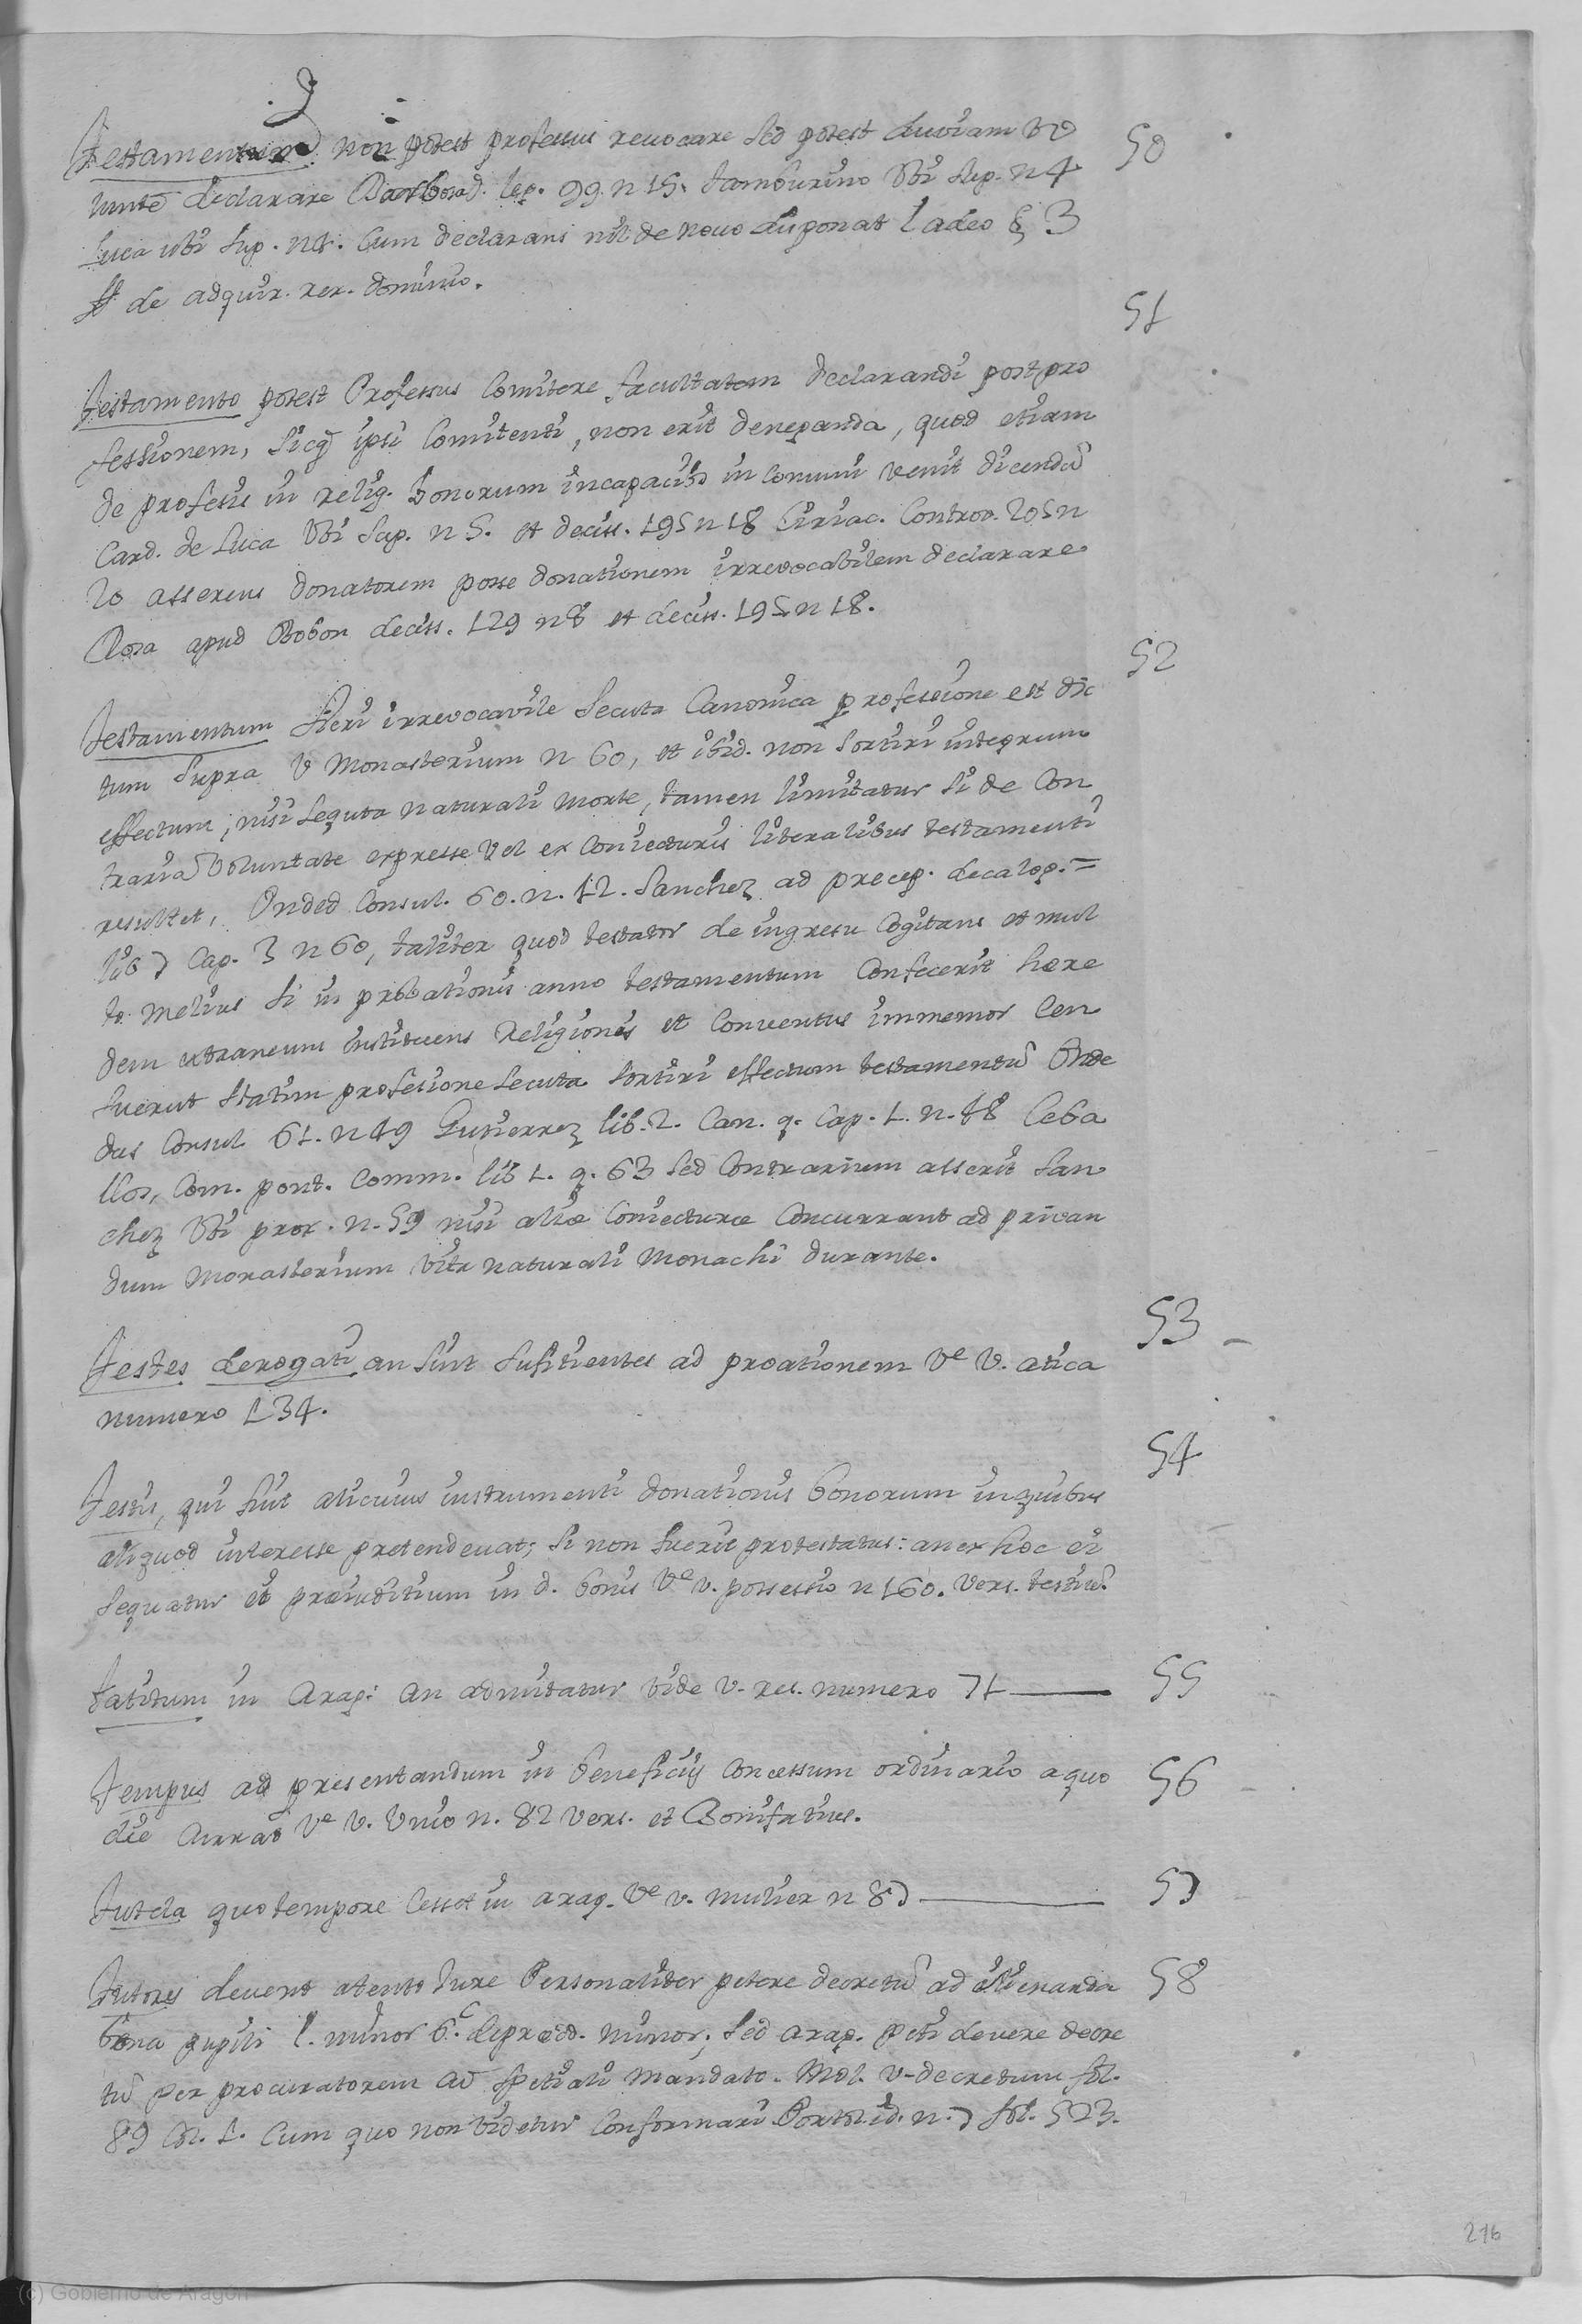 Testamentum non potest professus reuocare sed potest duviam vo 50
lunte declarare Barbosa d. lep. 99. n 15. tamburino Vbi sup. n 4
Luca ubi sup. n 4. Cum declarans nil de nouo disponat l adeo § 3
ff de adquir. rer. dominio.
51
Testamento potest Professus Comitere facultatem declarandi post pro
fessionem, sicq ipsi Comitenti, non erit deneganda, quod etiam
de profesis in relig. bonorum incapacibs in comuni venit dicendũ
Card. de Luca Vbi Sup. n 5. et deciss. 195 n 18 Ciriac. Controv. 205 n
20 asserens donatorem posse donationem irrevocabilem declarare
Rota apud Bobon deciss. 129 n 8 et deciss. 195 n 18.
52
Testamentum fieri irrevocavile secuta Canonica professione est dic
tum Supra V Monasterium n 60, et ibid. non sortiri integrum
effectum, nisi sequta naturali morte, tamen limitatur si de Con
traria voluntate expresse vel ex Coniecturis literalibus testamenti
resultet, Onded Consul. 60. n. 12. Sanchez ad precep. decalog. =
lib 7 Cap. 3 n 60, taliter quod testator de ingresu Cogitans et mul
to melius si in probationis anno testamentum Confecerit hære
dem extraneum instituens Religionis et Conventus immemor Cen
suerut statim profesione secuta sortiri effectum testamentũ Onde
dus Consul 61. n 49 Gutierrez lib. 2. Can. q. Cap. 1. n. 48 Ceba
llos, Com. pont. Comm. lib 1. q. 63 sed Contrarium asserit San
chez Vbi prox. n. 59 nisi aliæ Coniecturæ Concurrant ad privan
dum Monasterium vita naturali Monachi durante.
53
Testes derogati an sint sufitientes ad proationem Ve V. atica
numero 134.
54
Testis, qui fuit alicuius instrumenti donationis bonorum in quibus
aliquod interesse pretendevat, si non fuerit protestatus: an ex hoc ei
sequatur et præiuditium in d. bonis Ve v. possessio n 160. vers. testiũ
tatitum in Arag: an admitatur vide v. res. numero 71 55
Tempus ad presentandum in beneficiis Concessum ordinario a quo 56
die Currat Ve V. Vnio n. 82 vers. et Bonifatius.
Tutela quo tempore Cesset in arag. Ve v. mulier n 87 57
Tutores devent atento iure Personaliter petere decretũ ad alienanda 58
bona pupili l. minor 6. C de præd. minor; sed arag. peti devere decre
tũ per procuratorem ad spetiali mandato. Mol. v. decretum fol.
89 Col. 1. Cum quo non videtur Conformari Portol. id. n. 7 fol. 523.
276
(c) Gobierno de Aragón